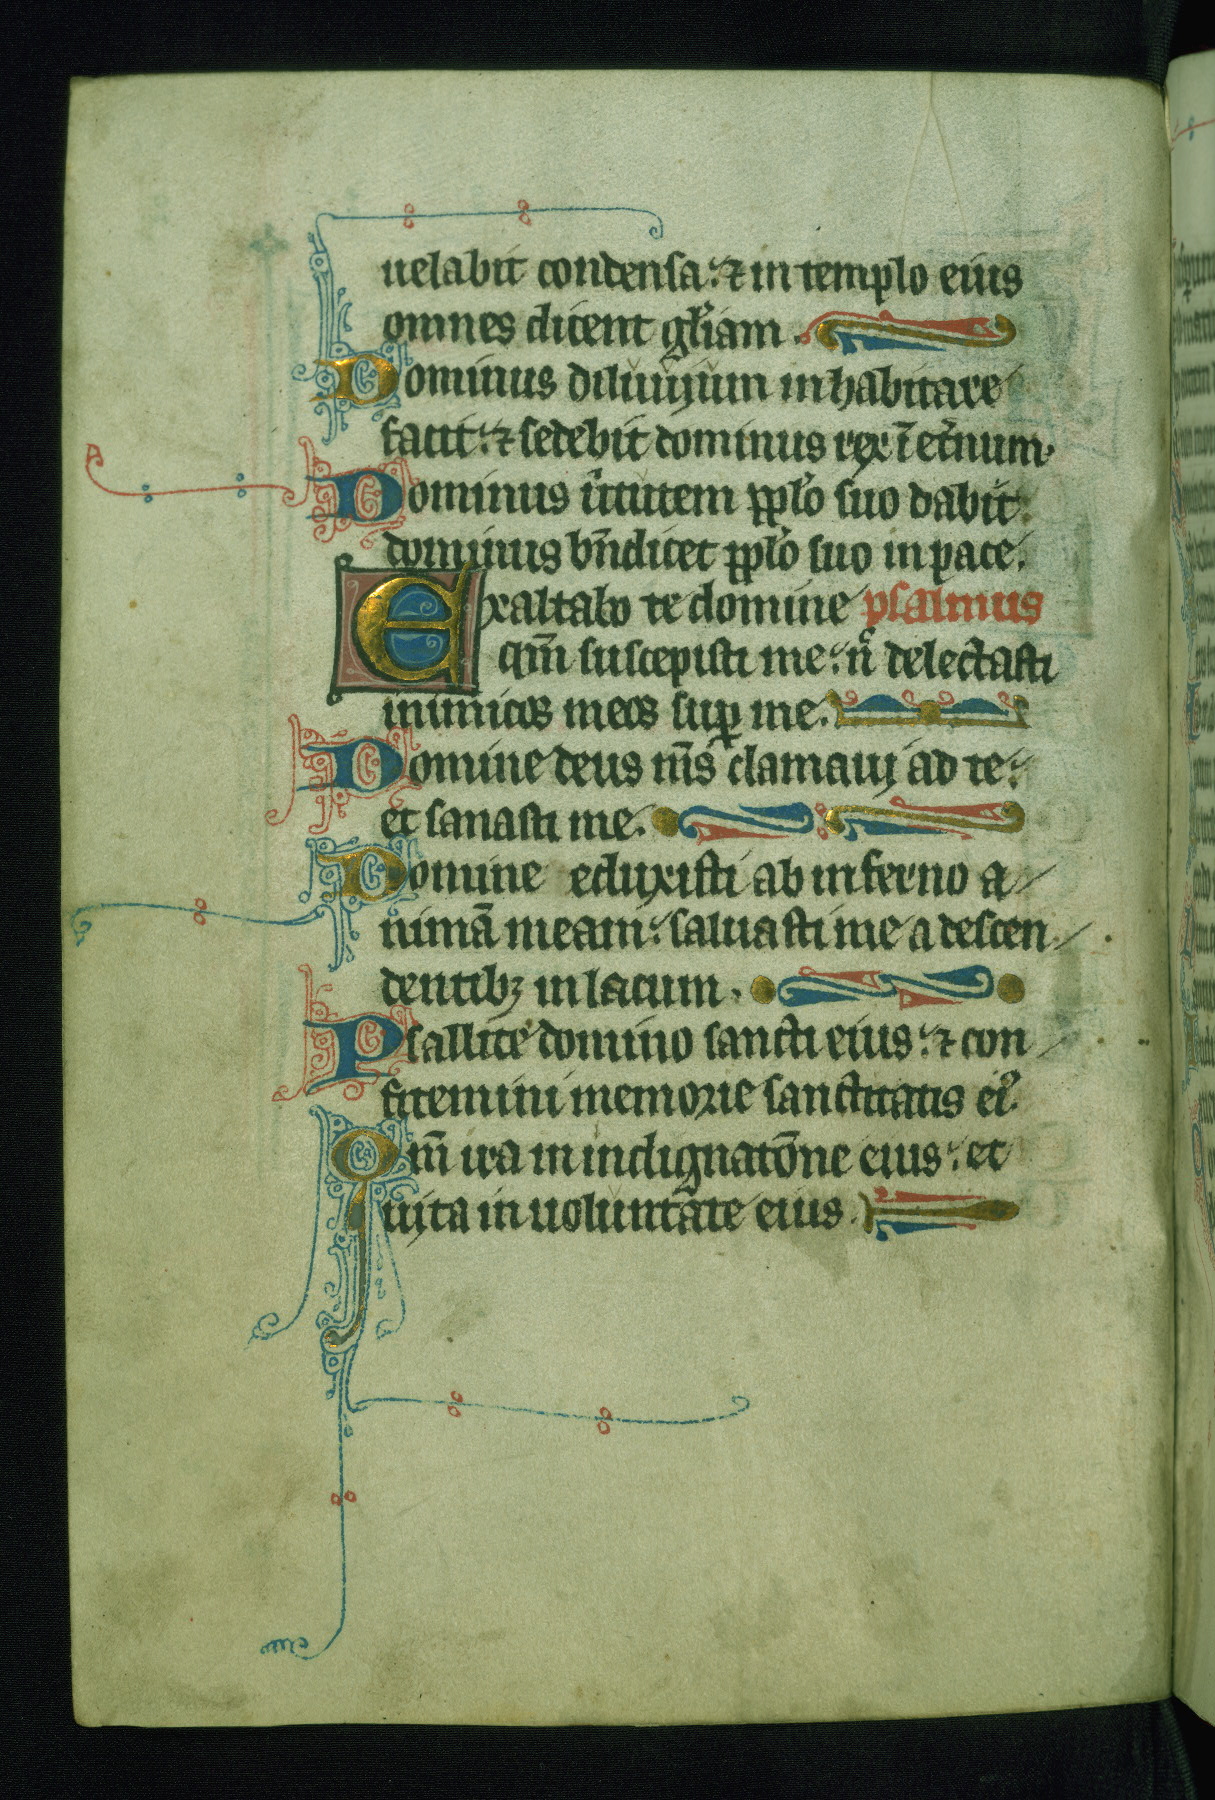 uelabit condensa: ⁊ in templo eius
omnes dicent gl̃iam.
Dominus diluuyum inhabitare
facit: ⁊ sedebit dominus rex ĩ et̃num.
Dominus ũtutem pp̃lo suo dabit
dominus bñdicet pp̃lo suo in pace.
Exaltabo te domine psalmus
qm̃ suscepisti me: ñ delectasti
inimicos meos suꝑ me.
Domine deus m̃s clamauy ad te:
et sanasti me.
Domine eduxisti ab inferno a
nimã meam: saluasti me a descen
dentibꝫ in lacum.
Psallite domino sancti eius: ⁊ con
fitemini memorie sanctitatis eiꝰ.
Qm̃ ira in indignatõne eius: et
uyta in uoluntate eius.